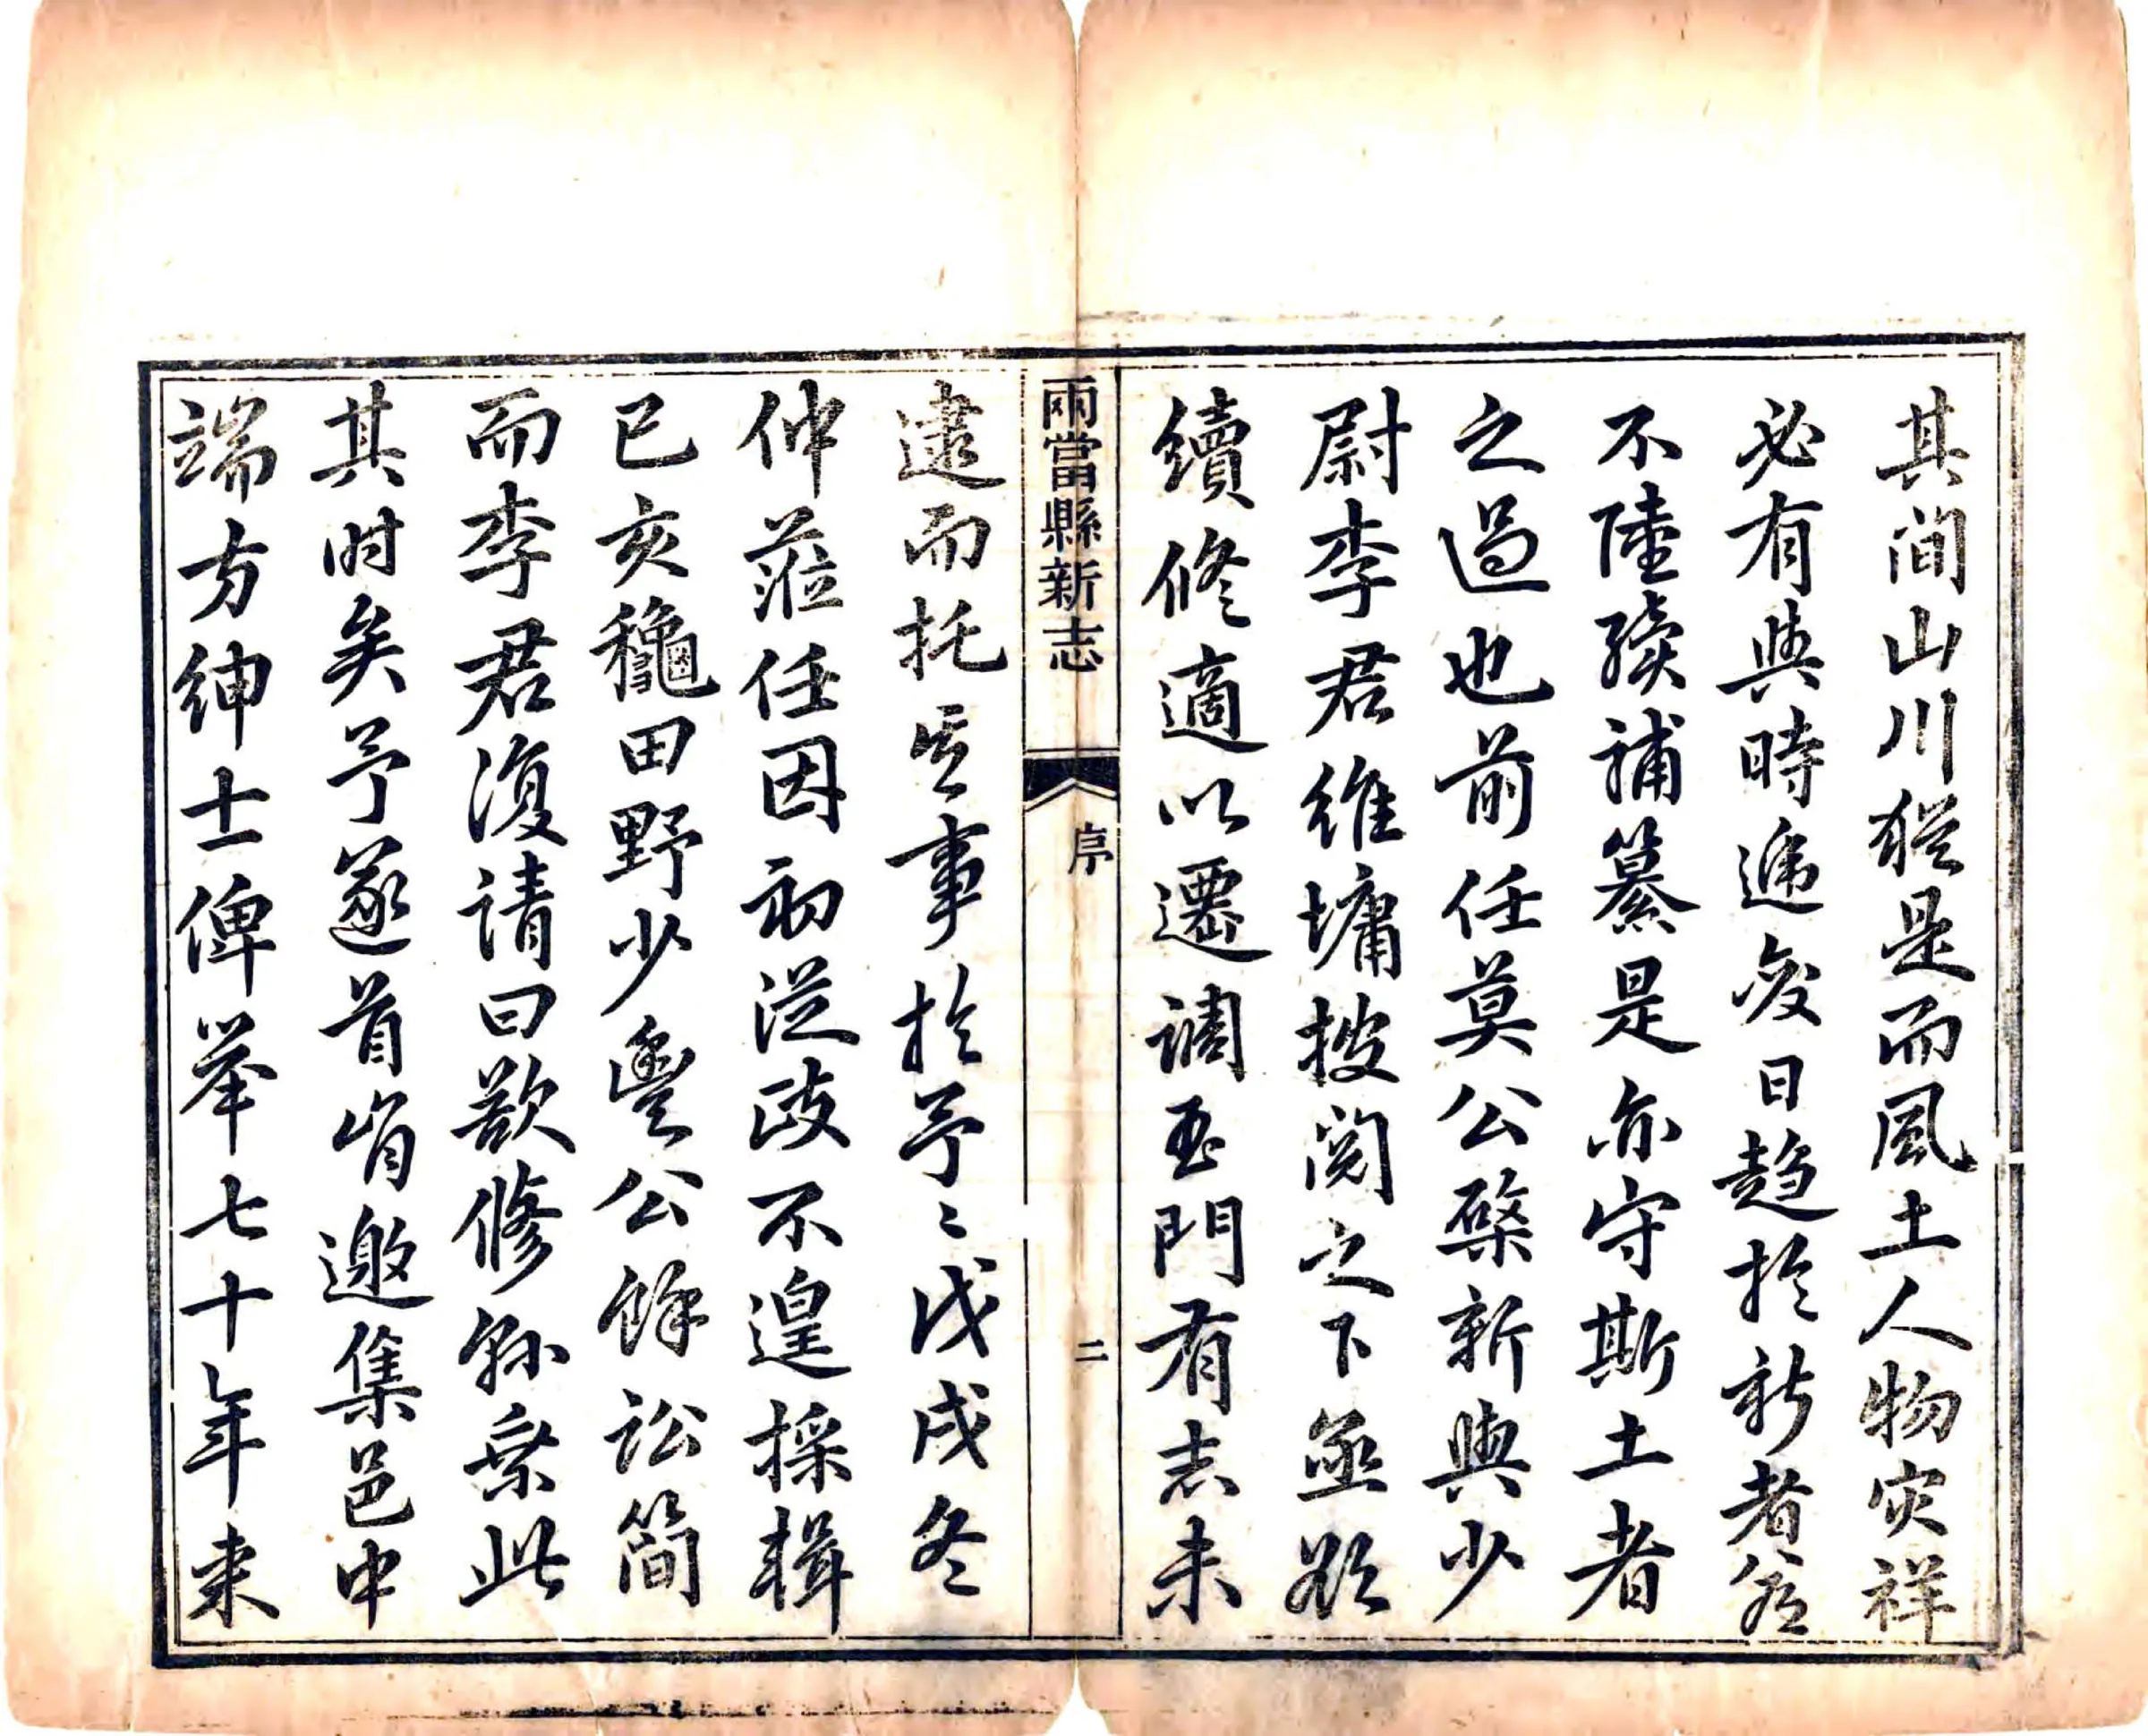 其间山川猶是而風土人物灾祥
必有與時遞变日趋於新者若
不陸續補纂是亦守斯土者
之過也前任莫公槩新與少
尉李君維墉披阅之下亟欲
續修適以遷調玉門有志未
兩當縣新志
序
二
逮而托其事於予〻戊戌冬
仲莅任因初從政不遑採輯
已亥龝田野少豊公餘訟簡
而李君復请曰欲修縣乘此
其时矣予遂首肯邀集邑中
端方紳士俾举七十年来